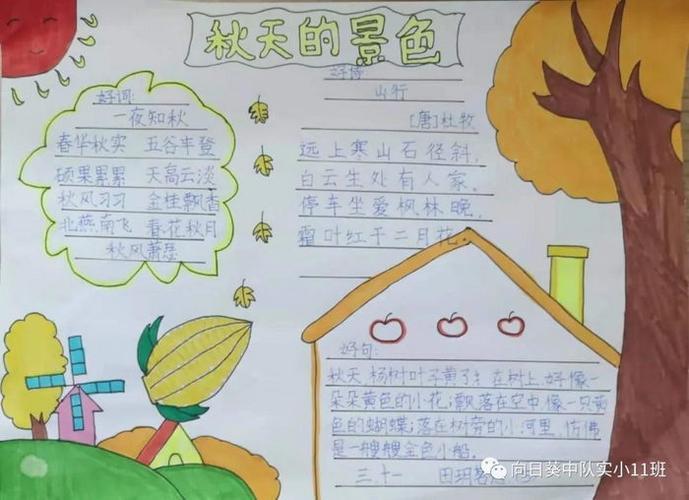 秋天的景色
好词:
一夜知秋
春华秋实 五谷丰登
硕果累累 天高云淡
秋风习习 金桂飘香
北燕南飞 春花秋月
秋风萧瑟
好诗
山行
[唐]杜牧
远上寒山石径斜,
白云生处有人家,
停车坐爱枫林晚,
霜叶红于二月花。
好句:
秋天,杨树叶子黄了,在树上,好像一
朵朵黄色的小花;飘落在空中,像一只黄
色的蝴蝶;落在树旁的小河里,仿佛
是一艘艘金色小船。
三.十一 田玥
向日葵中队实小11班